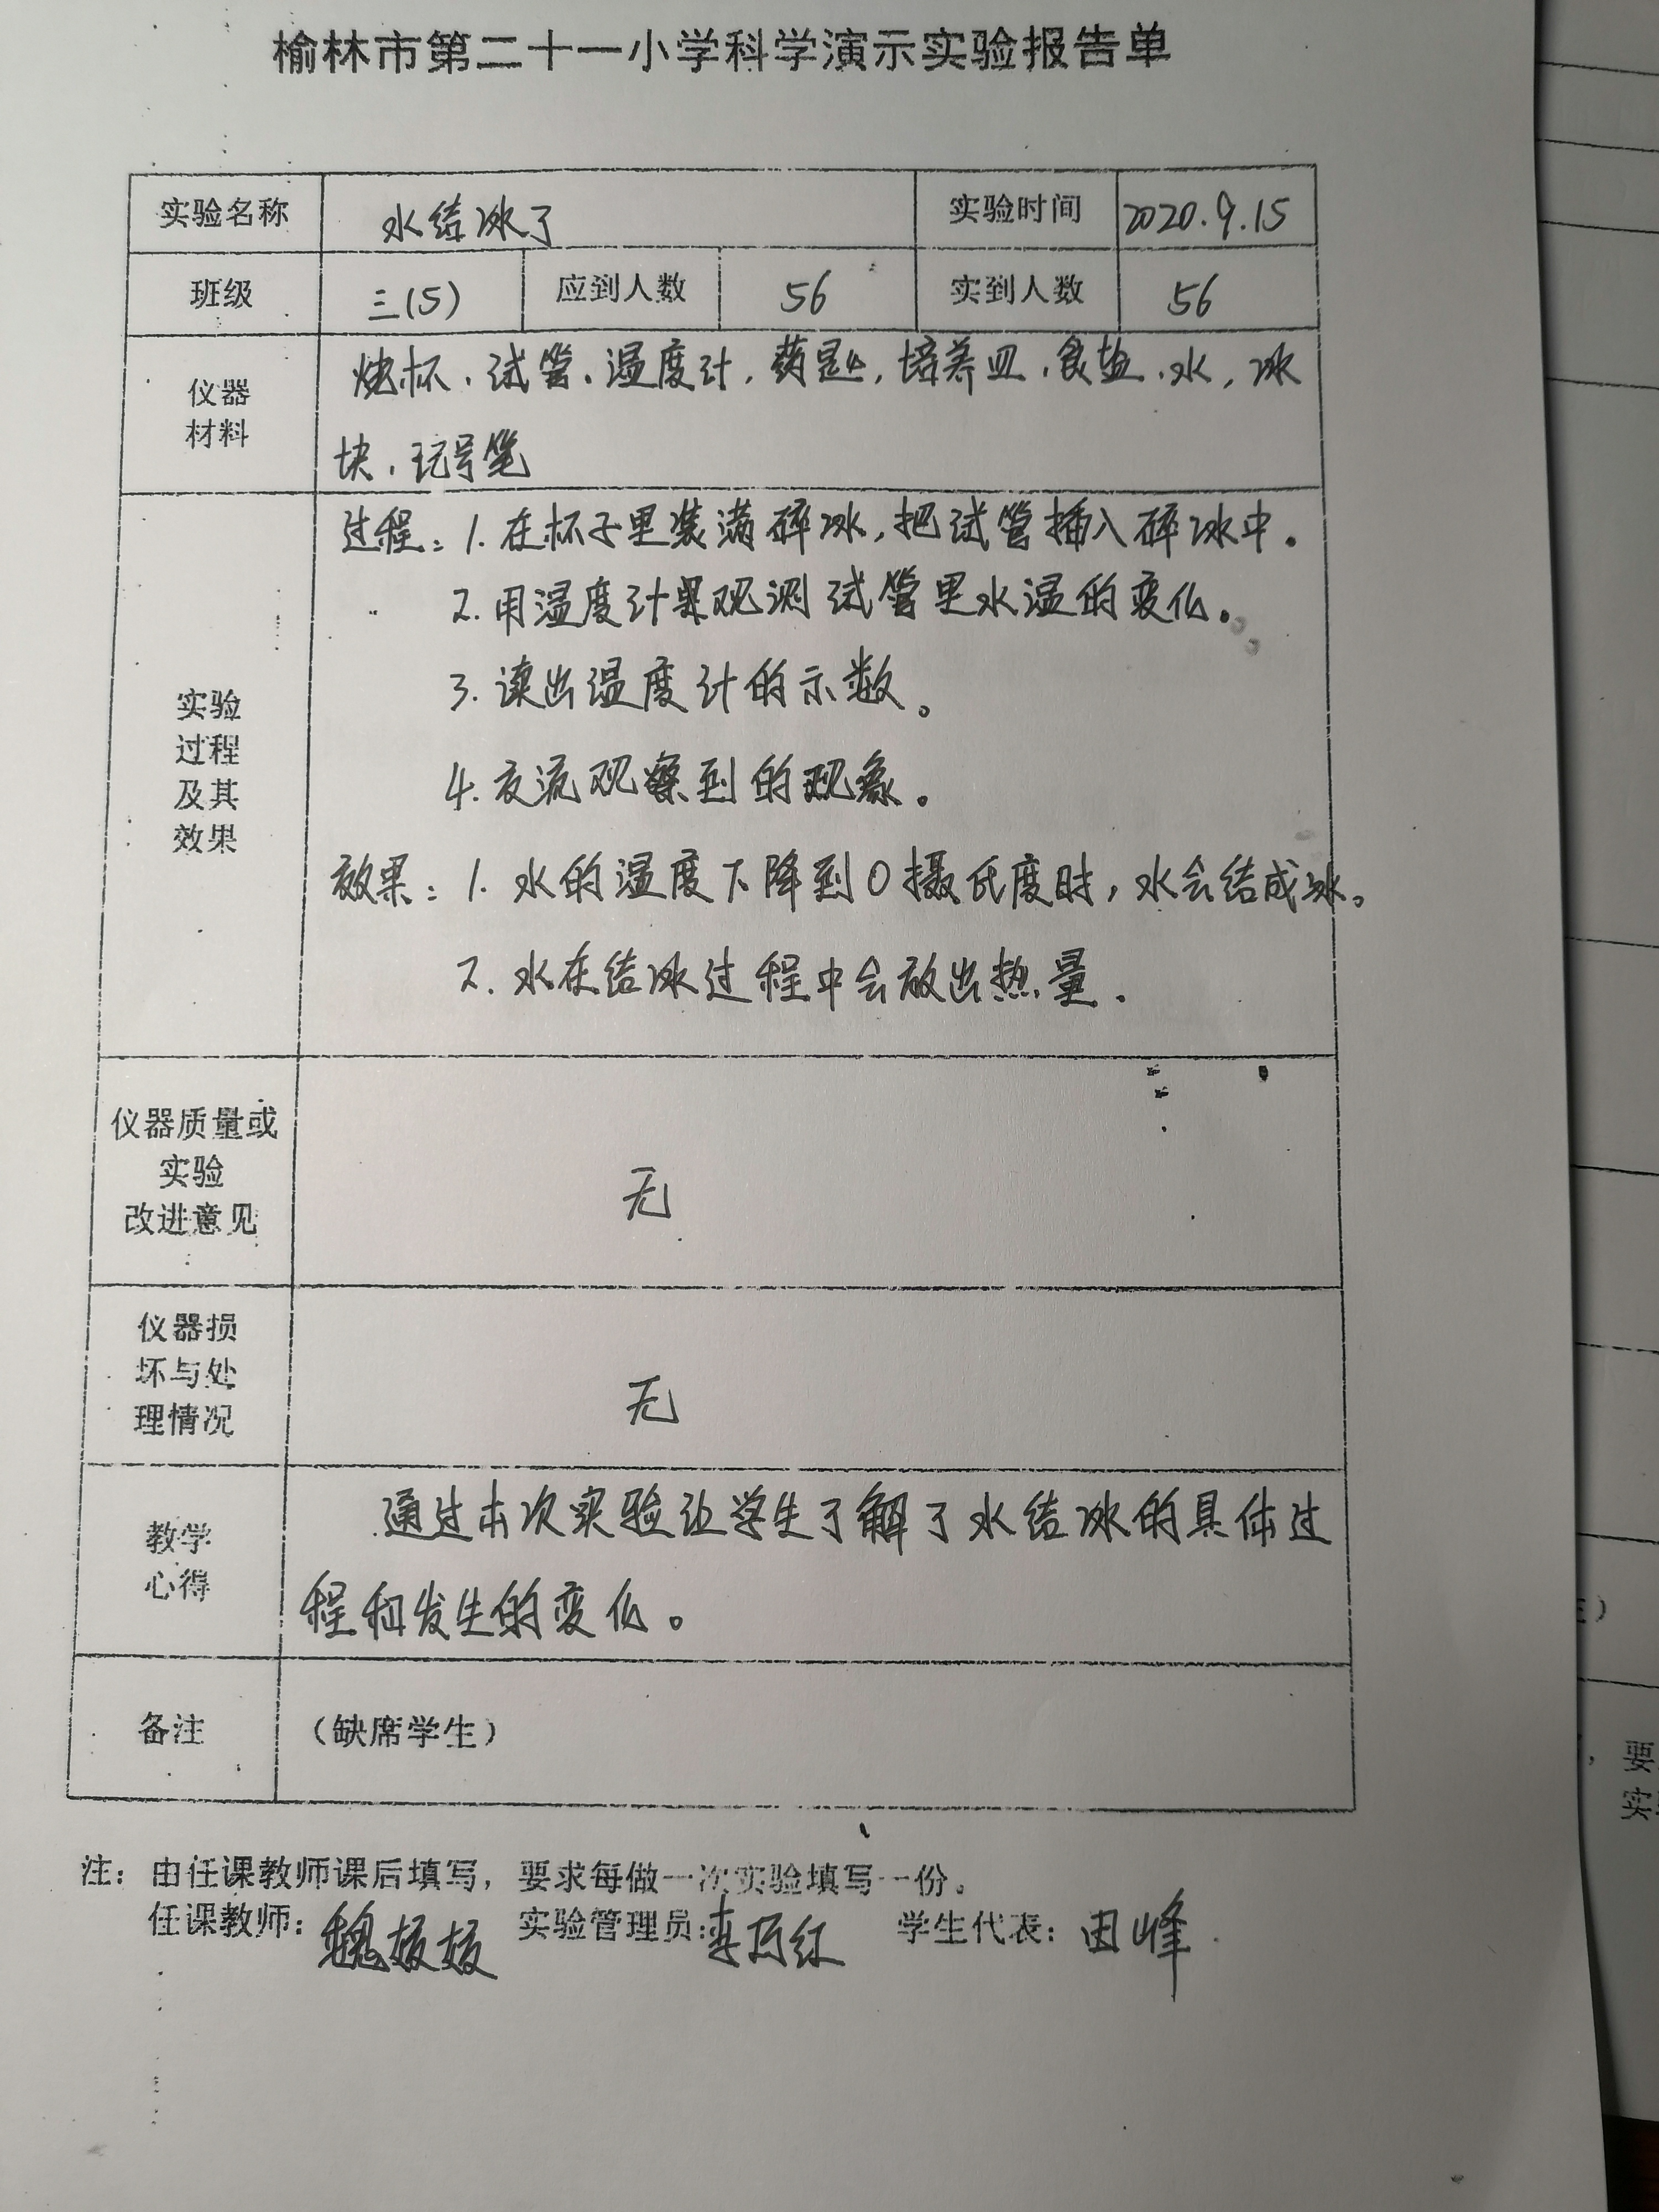 榆林市第二十一小学科学演示实验报告单
实验名称 水结冰了 实验时间 2020.9.15
班级 三(5) 应到人数 56 实到人数 56
仪器
材料
烧杯、试管、温度计,药匙,培养皿、食盐、水,冰
块、记号笔
实验
过程
及其
效果
过程:1.在杯子里装满碎冰,把试管插入碎冰中。
2.用温度计来观测试管里水温的变化。
3.读出温度计的示数。
4.交流观察到的现象。
效果:1.水的温度下降到0摄氏度时,水会结成冰。
2.水在结冰过程中会放出热量.
仪器质量或
实验
改进意见
无
仪器损
坏与处
理情况
无
教学
心得
通过本次实验让学生了解了水结冰的具体过
程和发生的变化。
备注 (缺席学生)
注:由任课教师课后填写,要求每做一次实验填写一份。
任课教师: 魏 实验管理员: 李 红 学生代表: 田峰
要
实